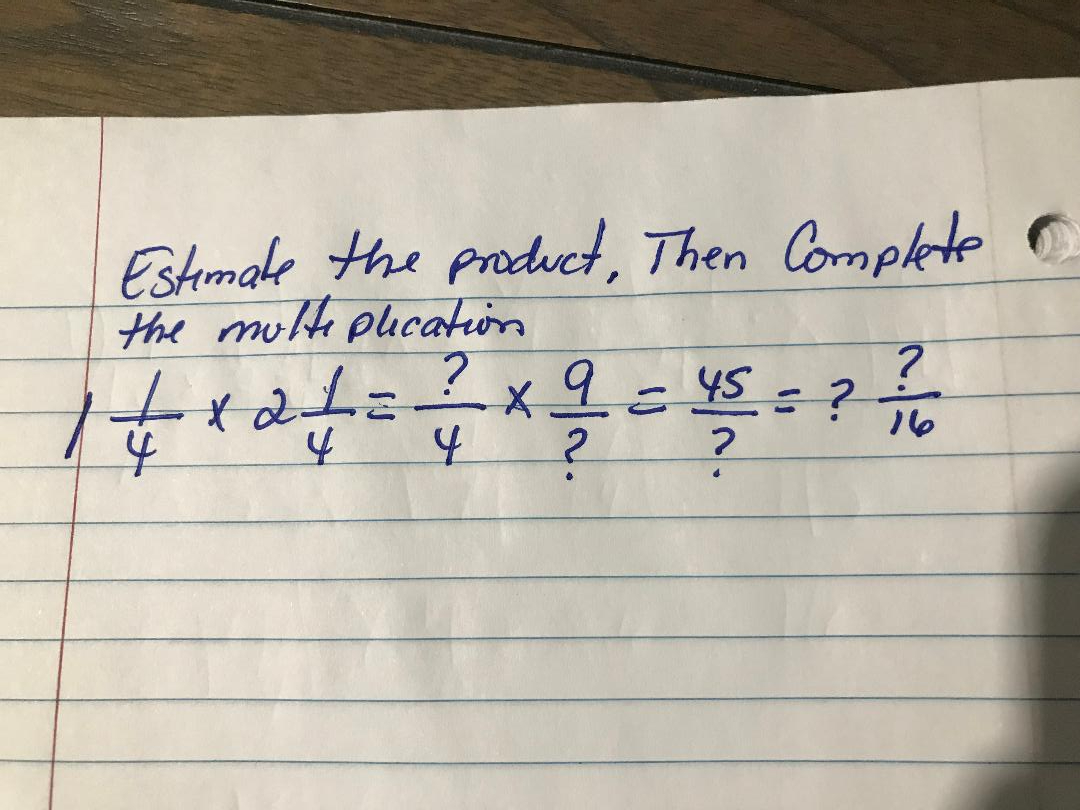 Estimate the product, Then Complete
the multiplication
1 1/4 x 2 1/4 = ?/4 x 9/? = 45/? = ? ?/16